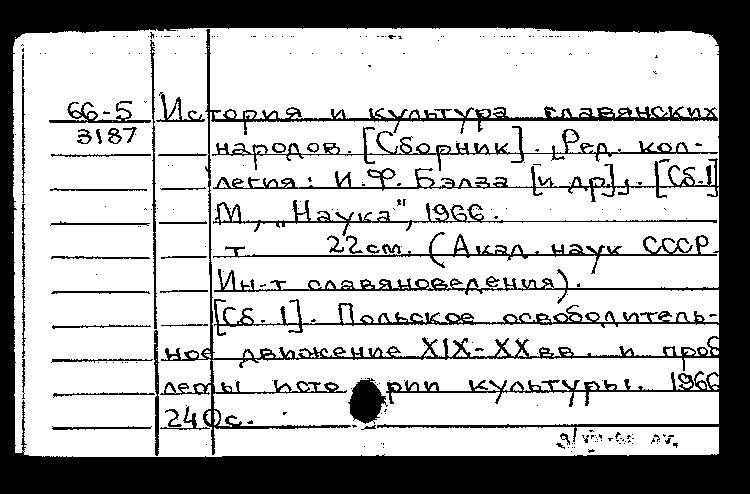 66-5 История и культура славянских
3187 народов. [Сборник]. „Ред. кол-
легия: И.Ф. Бэлза [и др.]„. [Сб.1]
М., „Наука", 1966.
т. 22 см. (Акад. наук СССР.
Ин-т славяноведения).
[Сб. 1]. Польское освободитель-
ное движение XIX-XX вв. и проб
лемы истории культуры. 1966
240с.